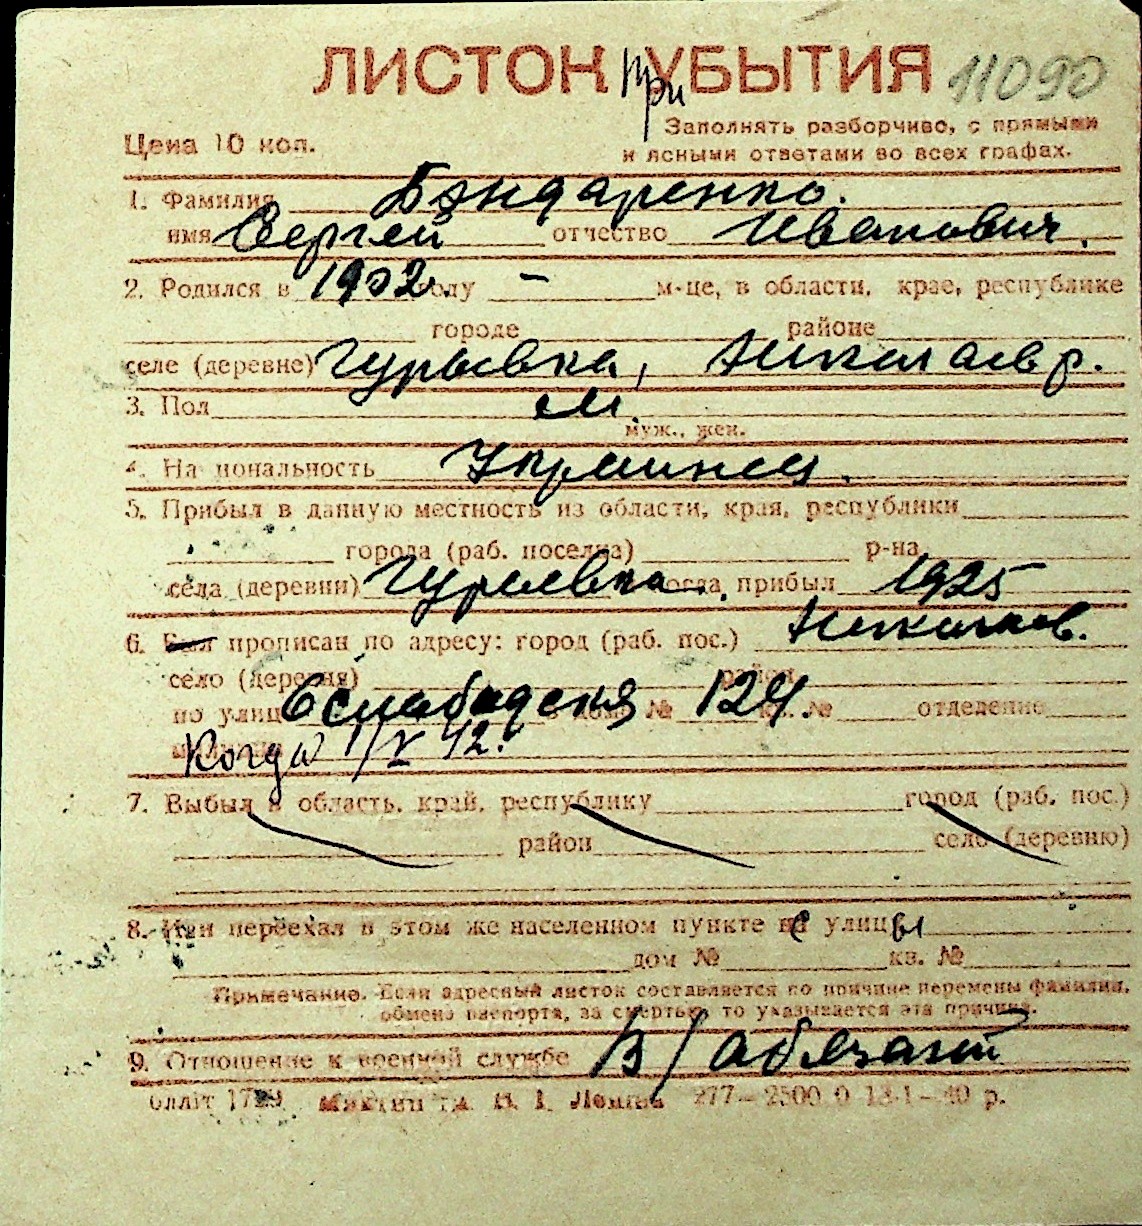 ЛИСТОК при УБЫТИЯ 11090
Цена 10 коп.
Заполнять разборчиво, с прямыми
и ясными ответами во всех графах.
1. Фамилия Бондаренко.
имя Сергей отчество Иванович.
2. Родился в 1902 г. году — м-це, в области, крае, республике
городе районе
селе (деревне) Гурьевка, Николаев р.
3. Пол м.
муж., жен.
4. Национальность Украинец.
5. Прибыл в данную местность из области, края, республики
города (раб. поселка) р-на
села (деревни) Гурьевка когда прибыл 1925
6. Был прописан по адресу: город (раб. пос.) Николаев.
село (деревня) район
по улице 6 Слабадская в доме № 124 кв. № отделение
Когда 1/V 42.
7. Выбыл в область, край, республику город (раб. пос.)
район село (деревню)
8. Или переехал в этом же населенном пункте не улицы
дом № кв. №
Примечание. Если адресный листок составляется по причине перемены фамилии,
обмена паспорта, за смертью, то указывается эта причина.
9. Отношение к военной службе В/абязаный
277—2500 0 13-1-40 р.